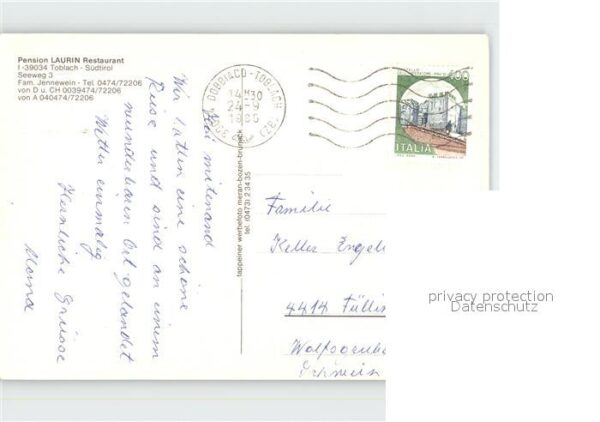 Pension LAURIN Restaurant
I-39034 Toblach - Südtirol
Seeweg 3
Fam. Jennewein - Tel. 0474/72206
von D u. CH 0039474/72206
von A 040474/72206
DOBBIACO - TOBLACH
14 H30
24-9
(BZ)
600
ITALIA
tappeiner werbefoto meran-bozen-bruneck
tel. (0473) 2 34 35
mitenand
Wir hatten eine schöne
Reise und sind an einem
wunderbaren Ort gelandet
Wetter einmalig
Herzliche Grüsse
Familie
Keller Engel
4414 Fülli
privacy protection
Datenschutz